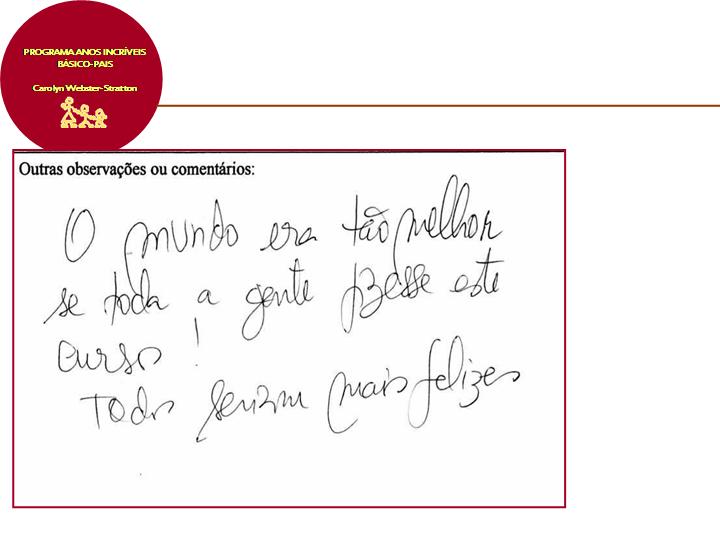 PROGRAMA ANOS INCRÍVEIS
BÁSICO-PAIS
Carolyn Webster-Stratton
Outras observações ou comentários:
O mundo era tão melhor
se toda a gente fizesse este
curso!
Todos seriam mais felizes